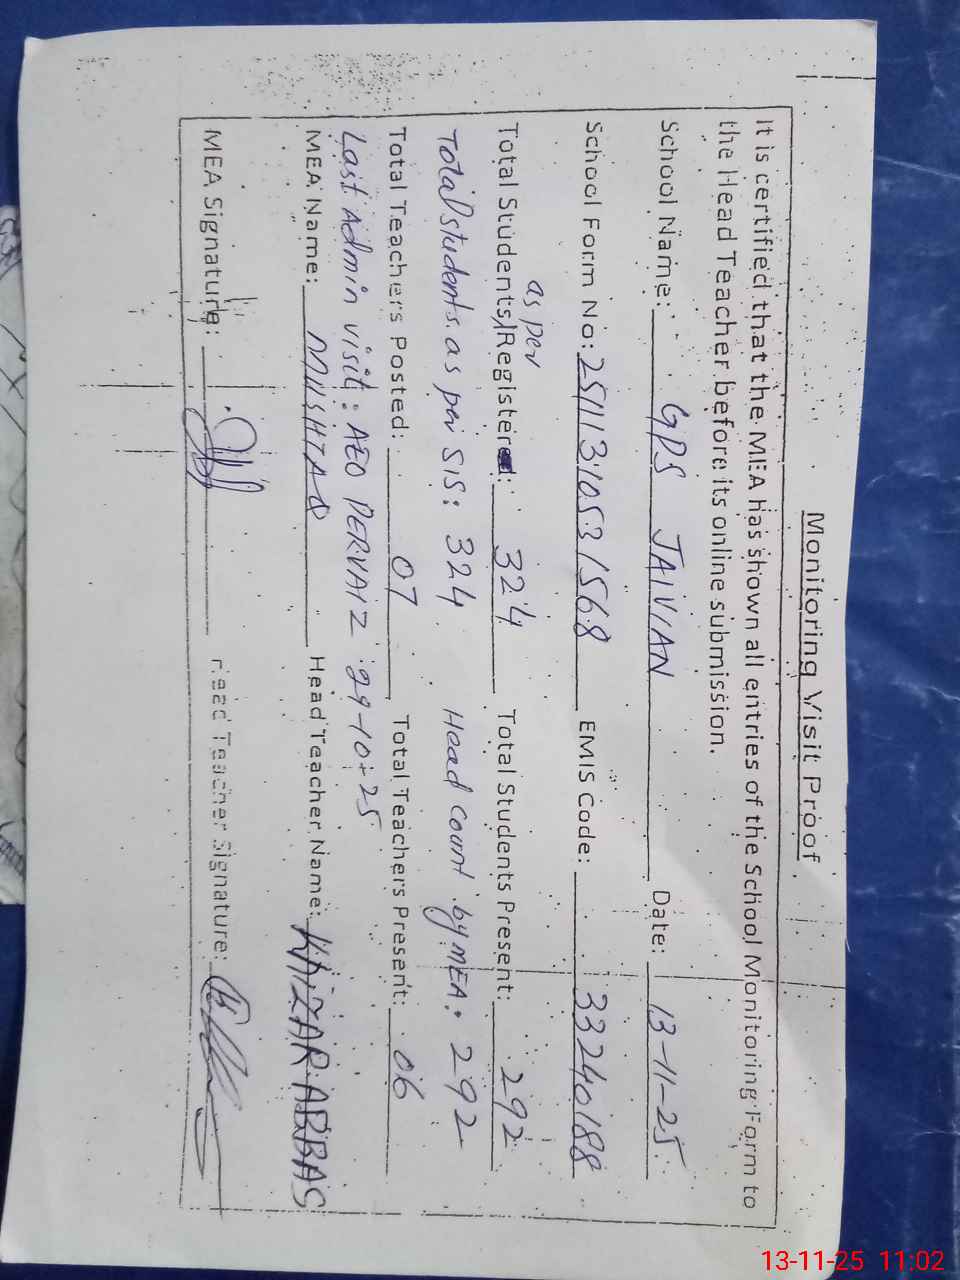 Monitoring Visit Proof
It is certified that the MEA has shown all entries of the School Monitoring Form to
the Head Teacher before its online submission.
School Name: GPS JAIVIAN Date: 13-11-25
School Form No: 2511131053 1568 EMIS Code: 33240188
as per
Total Students Registered: 324 Total Students Present: 292
Total students as per SIS: 324 Head count by MEA: 292
Total Teachers Posted: 07 Total Teachers Present: 06
Last Admin visit: AEO PERVAIZ 29-10-25
MEA Name: MUSHTAQ Head Teacher Name: KHIZAR ABBAS
MEA Signature: Head Teacher Signature:
13-11-25 11:02